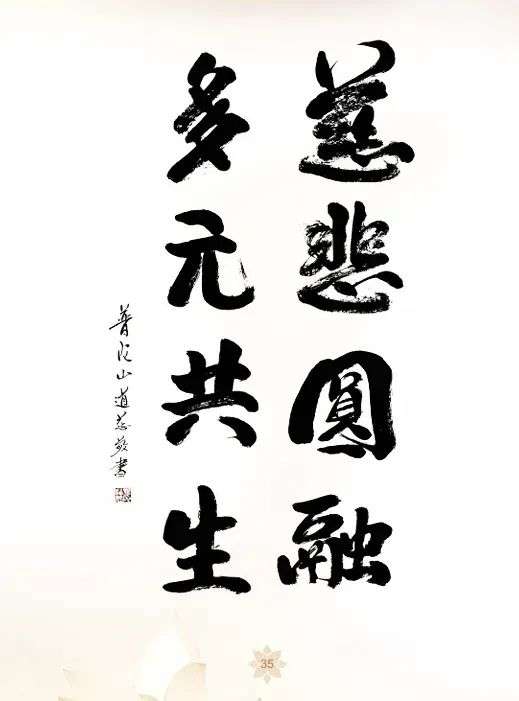 慈悲圓融
多元共生
普陀山道慈敬書
35